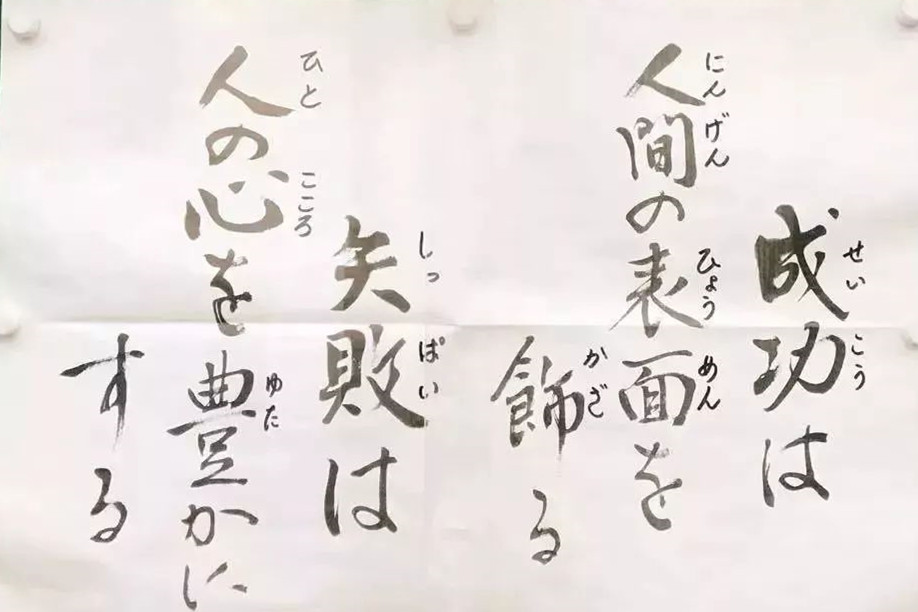 成功は
せいこう
人間の表面を
にんげん ひょうめん
飾る
かざ
失敗は
しっぱい
人の心を豊かに
ひと こころ ゆた
する